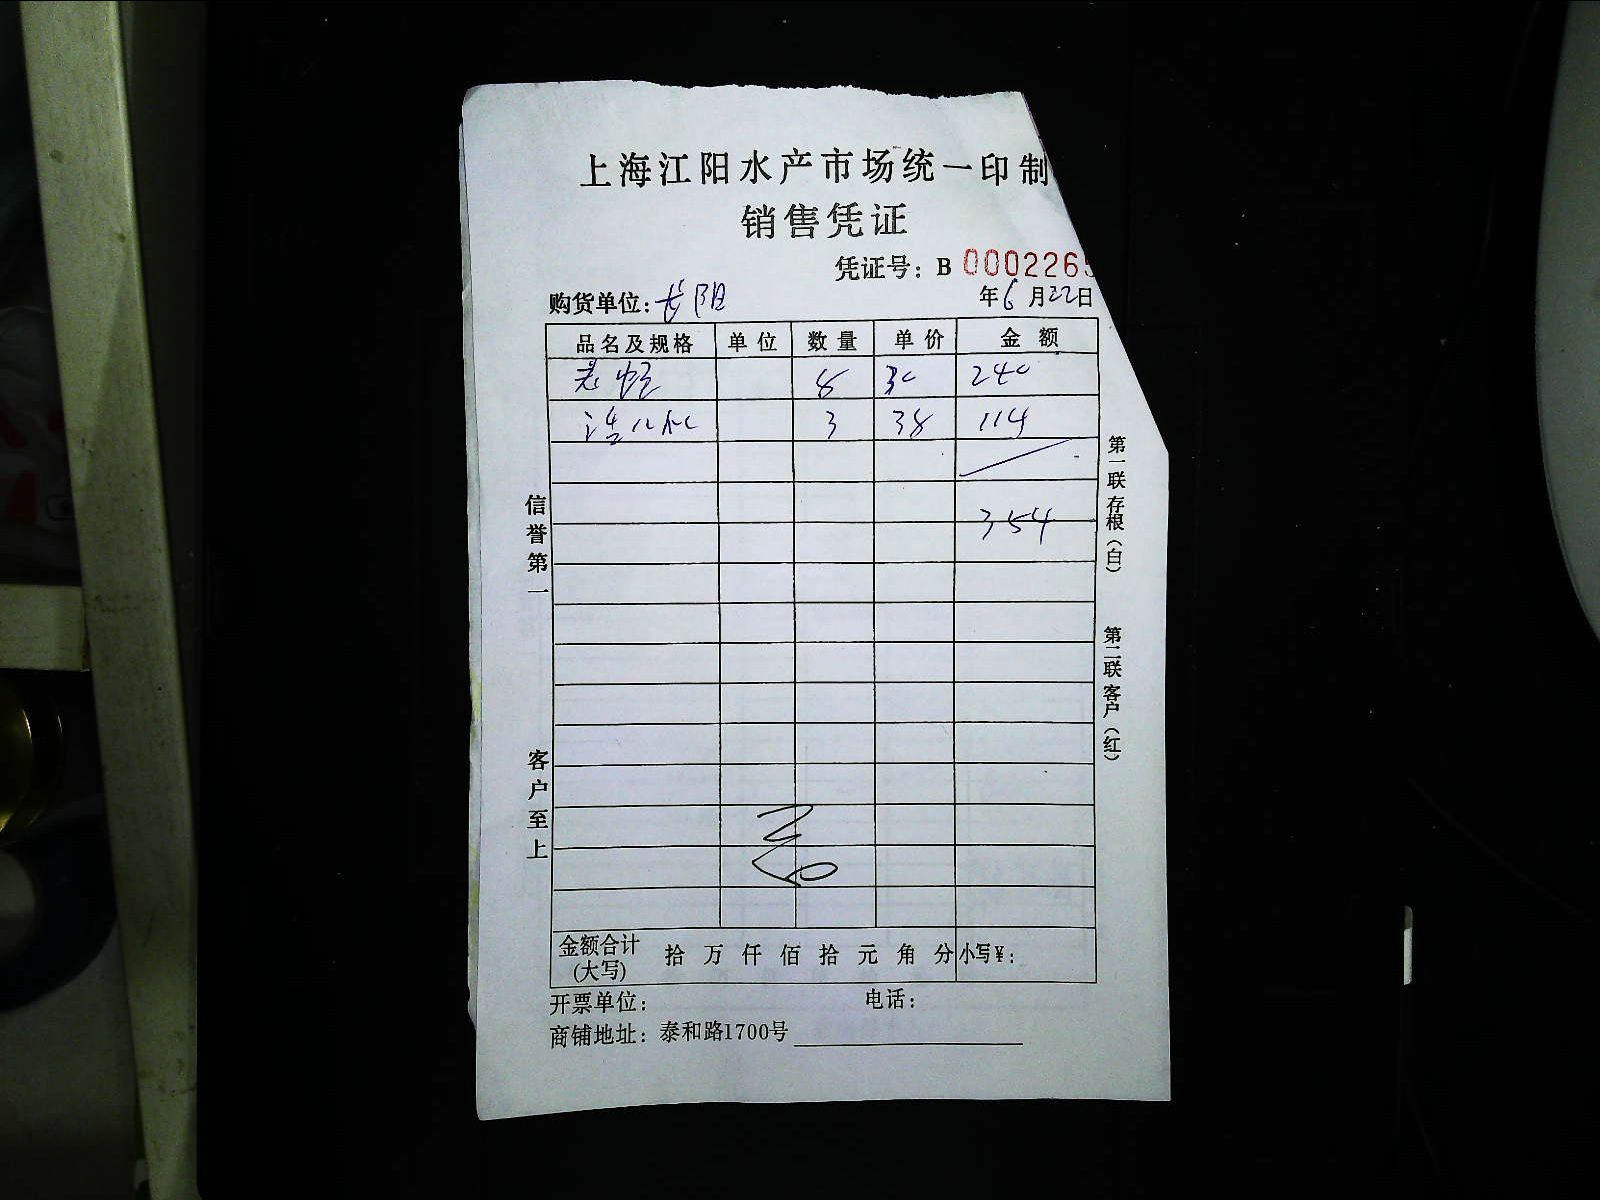 上海江阳水产市场统一印制
销售凭证
凭证号：B 0002265
购货单位：长阳 年6月22日
品名及规格 单位 数量 单价 金额
8 30 240
3 38 114
354
信誉第一
客户至上
第一联存根（白）
第二联客户（红）
金额合计(大写) 拾 万 仟 佰 拾 元 角 分 小写¥：
开票单位： 电话：
商铺地址：泰和路1700号